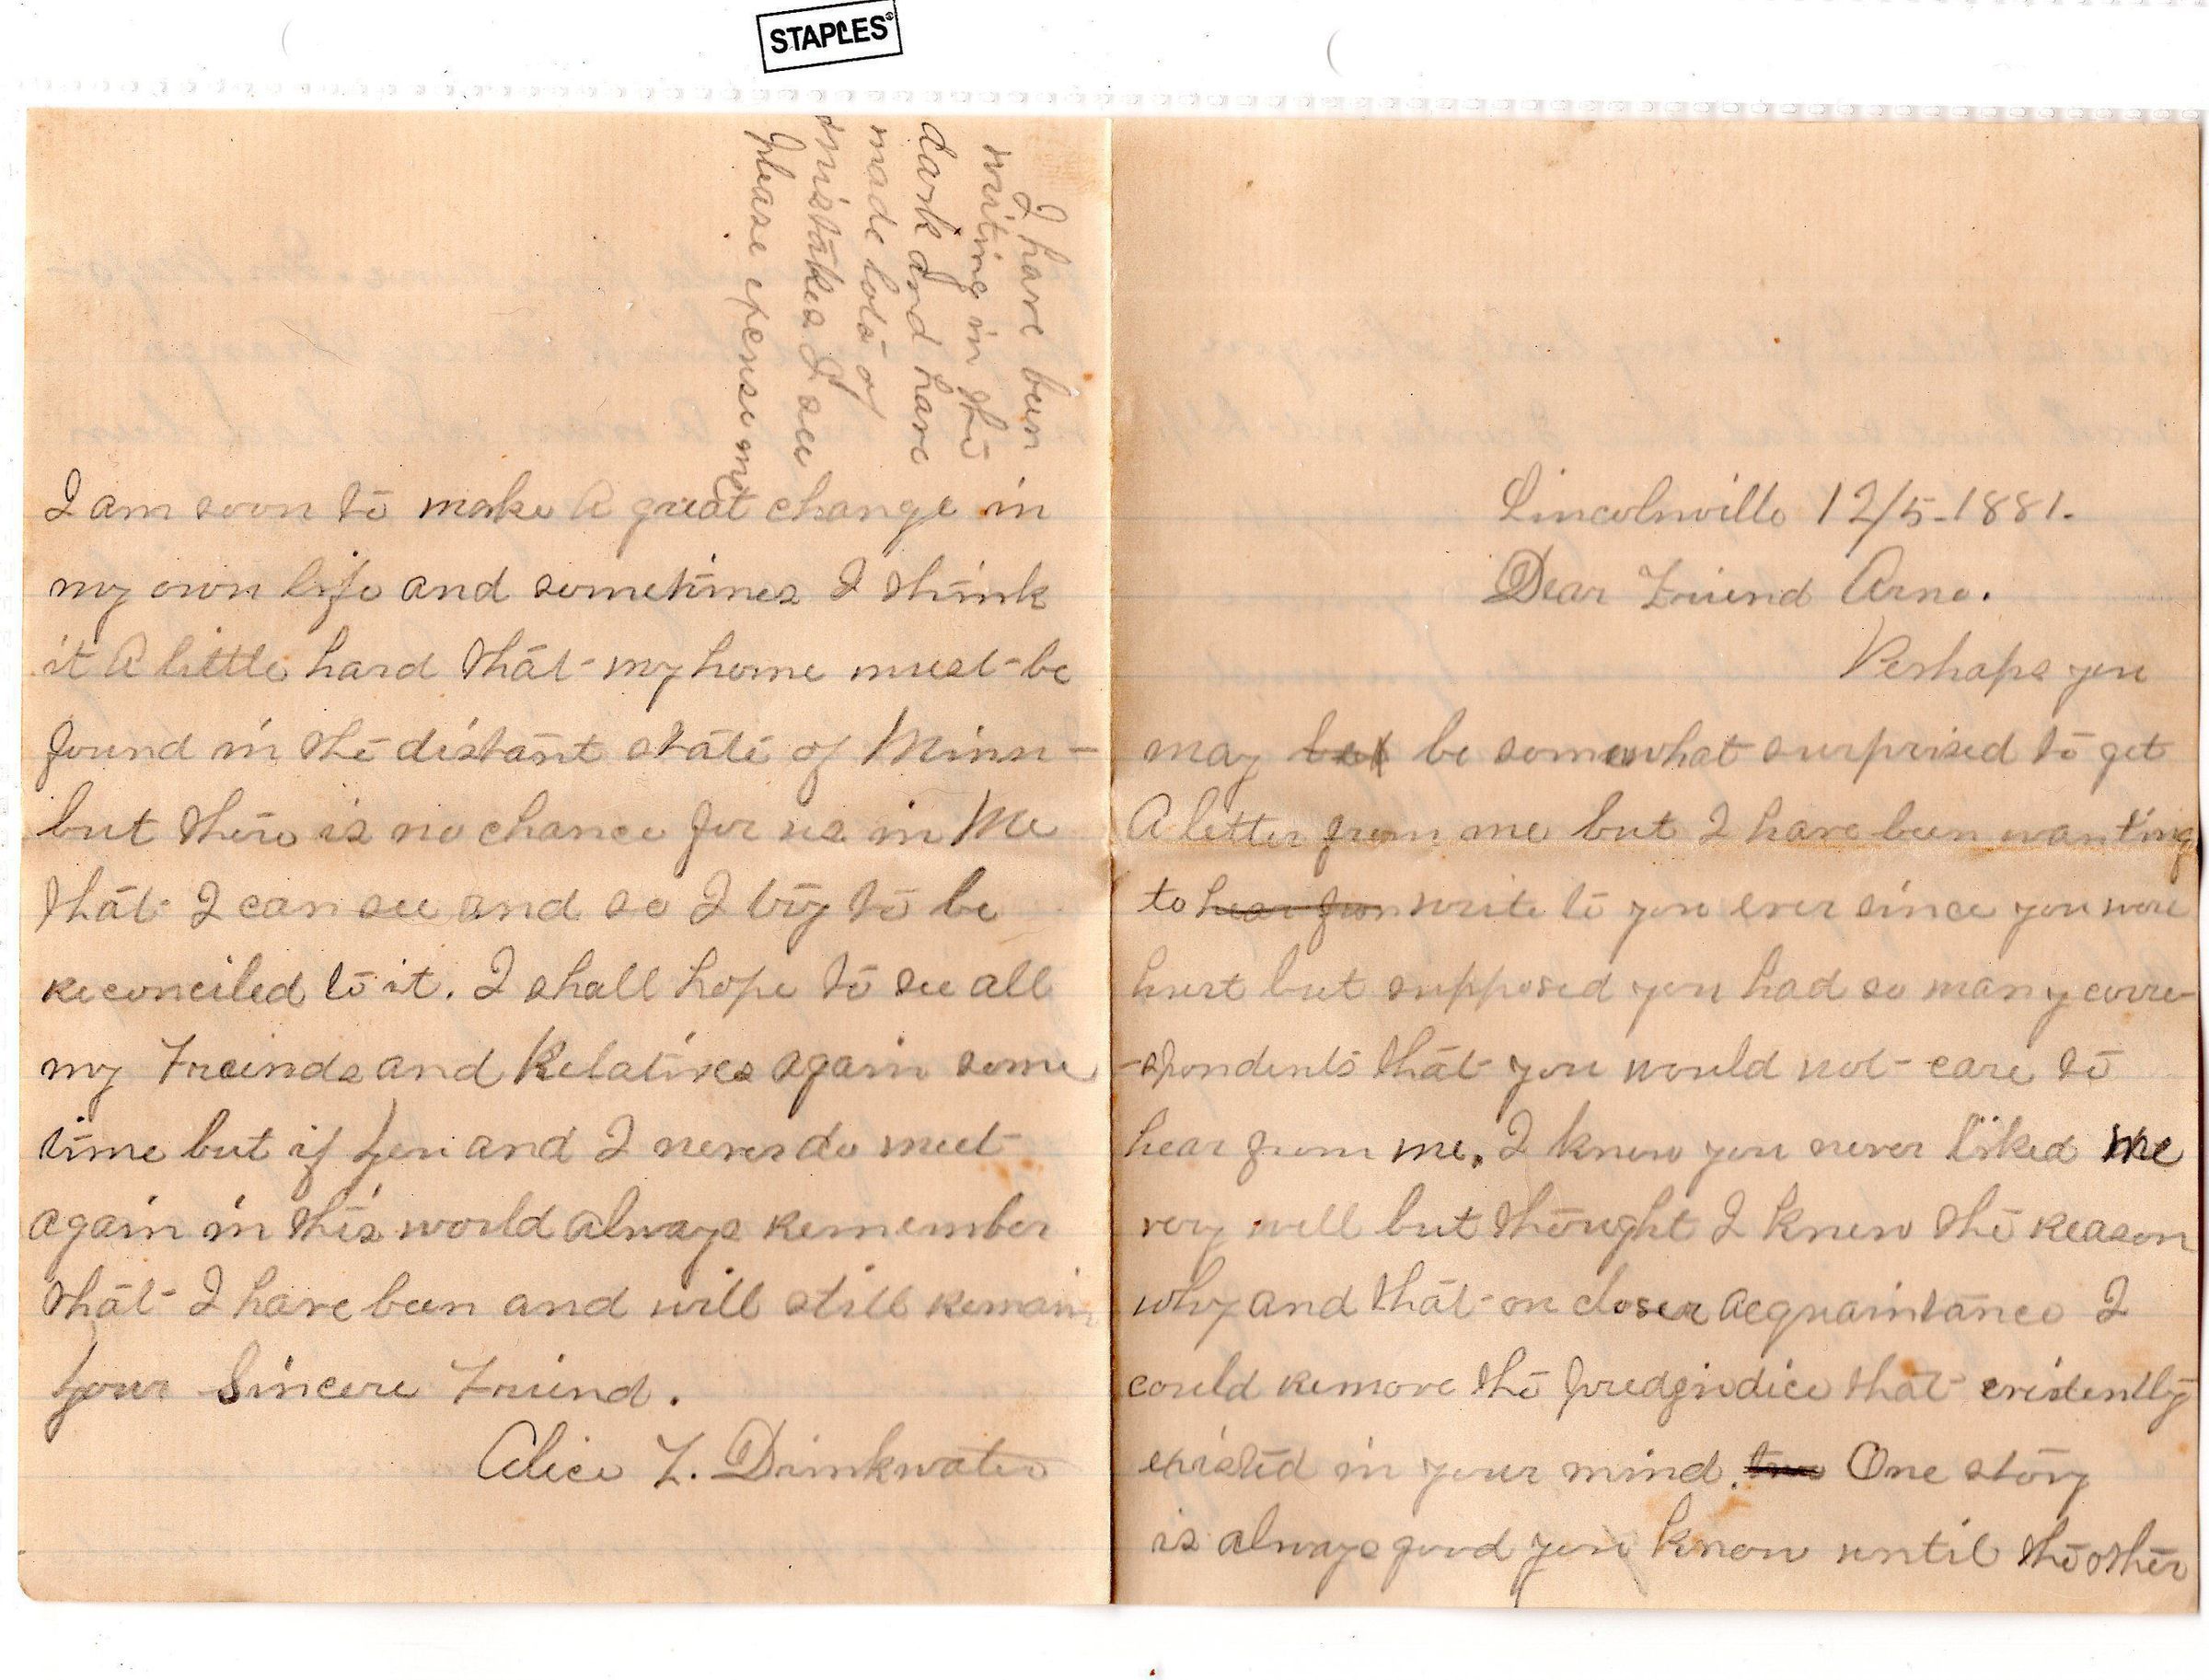 STAPLES®
Lincolnville 12/5-1881.
Dear Friend Arno.
Perhaps you
may be somewhat surprised to get
A letter from me but I have been wanting
to hear from write to you ever since you were
hurt but supposed you had so many corre-
-spondents that you would not care to
hear from me. I knew you never liked me
very well but thought I knew the reason
why and that on closer acquaintance I
could remove the predgudice that evidently
existed in your mind. One story
is always good you know until the other
I am soon to make A great change in
my own life and sometimes I think
it A little hard that my home must be
found in the distant state of Minn-
but there is no chance for us in Me
that I can see and so I try to be
reconciled to it. I shall hope to see all
my Freinds and Relatives again some
time but if you and I never do meet
again in this world always remember
that I have been and will still remain
your Sincere Friend.
Alice F. Drinkwater
I have been
writing in the
dark and have
made lots of
mistakes I see
please excuse me